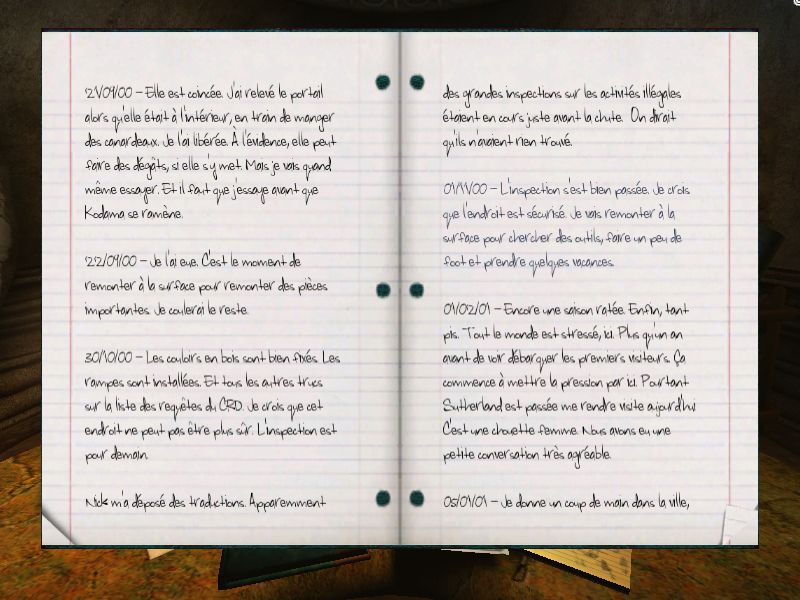 21/09/00 – Elle est coincée. J'ai relevé le portail
alors qu'elle était à l'intérieur, en train de manger
des canardeaux. Je l'ai libérée. À l'évidence, elle peut
faire des dégâts, si elle s'y met. Mais je vais quand
même essayer. Et il faut que j'essaye avant que
Kodama se ramène.
22/09/00 – Je l'ai eue. C'est le moment de
remonter à la surface pour remonter des pièces
importantes. Je coulerai le reste.
30/10/00 – Les couloirs en bois sont bien fixés. Les
rampes sont installées. Et tous les autres trucs
sur la liste des requêtes du CRD. Je crois que cet
endroit ne peut pas être plus sûr. L'inspection est
pour demain.
Nick m'a déposé des traductions. Apparemment
des grandes inspections sur les activités illégales
étaient en cours juste avant la chute. On dirait
qu'ils n'avaient rien trouvé.
01/11/00 – L'inspection s'est bien passée. Je crois
que l'endroit est sécurisé. Je vais remonter à la
surface pour chercher des outils, faire un peu de
foot et prendre quelques vacances.
01/02/01 – Encore une saison ratée. Enfin, tant
pis. Tout le monde est stressé, ici. Plus qu'un an
avant de voir débarquer les premiers visiteurs. Ça
commence à mettre la pression par ici. Pourtant
Sutherland est passée me rendre visite aujourd'hui
C'est une chouette femme. Nous avons eu une
petite conversation très agréable.
05/01/01 – Je donne un coup de main dans la ville,